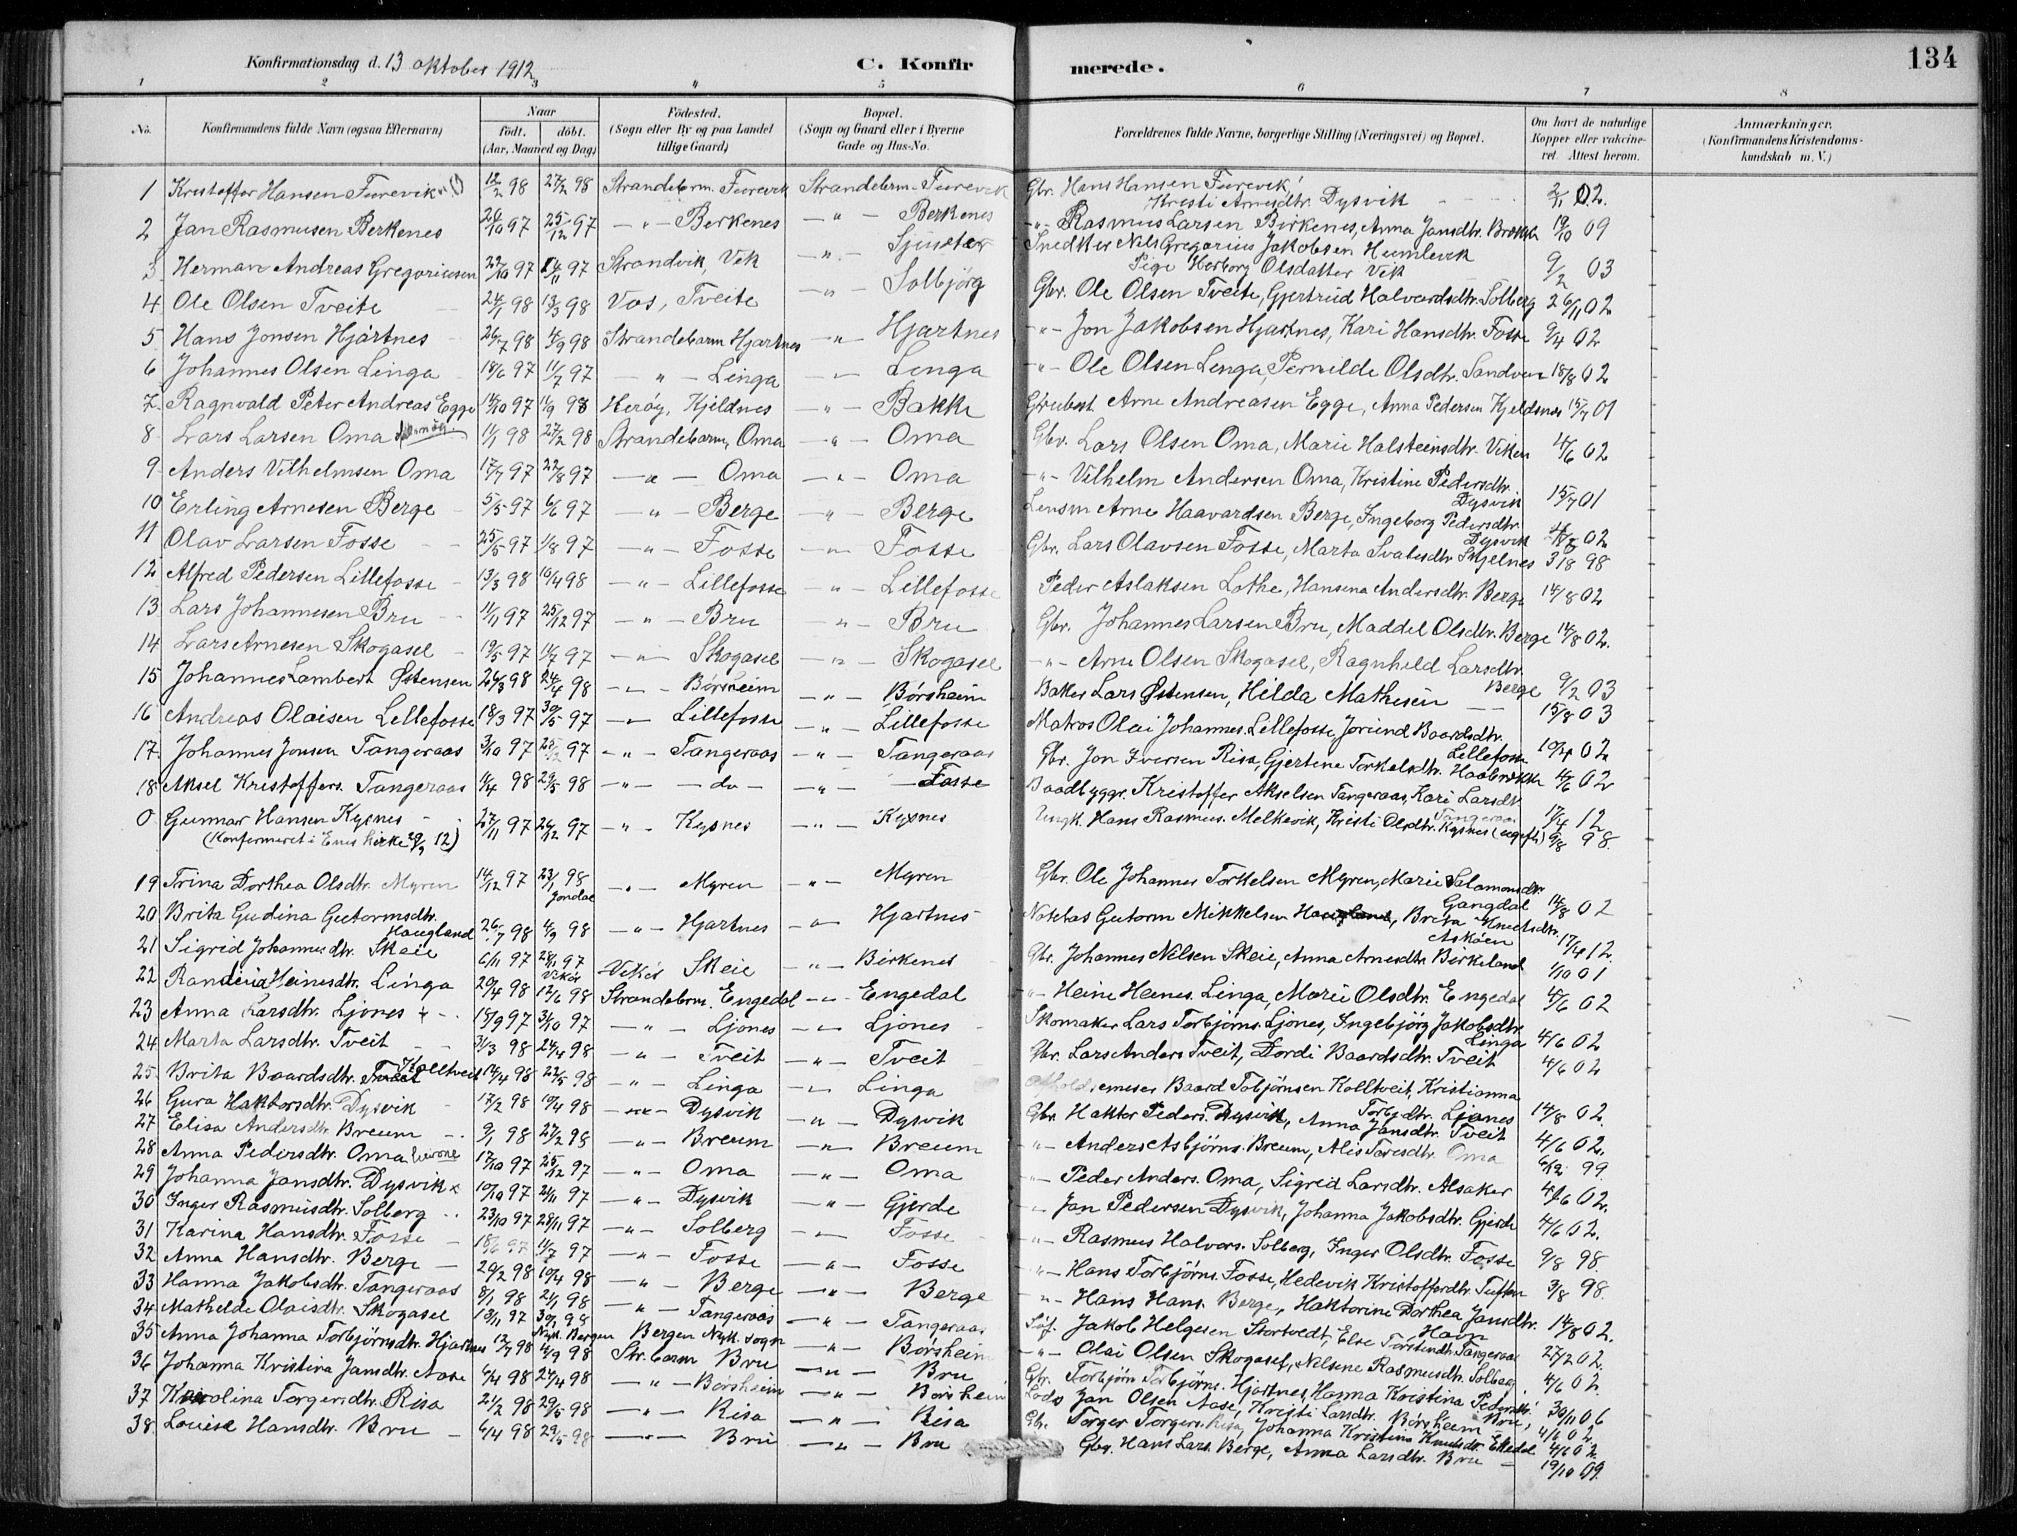 134
Konfirmationsdag d. 13 oktober 1912 C. Konfirmerede.
1 2 3 4 5 6 7 8
No. Konfirmandens fulde Navn (ogsaa Efternavn) Naar födt. döbt. (Aar, Maaned og Dag) Födested. (Sogn eller By og paa Landet tillige Gaard) Bopæl. (Sogn og Gaard eller i Byerne Gade og Hus-No. Forældrenes fulde Navne, borgerlige Stilling (Næringsvei) og Bopæl. Om havt de naturlige Kopper eller vakcineret. Attest herom. Anmærkninger. (Konfirmandens Kristendomskundskab m. V.)
1 Kristoffer Hansen Furevik 12/2 98 27/2 98 Strandebrm. Furevik Strandebrm. Furevik Gbr. Hans Hansen Furevik, Kristi Arnesdtr. Dysvik 02.
2 Jan Rasmusen Berkenes 97 25/12 97 — " — Berkenes — " — Berkenes — " — Rasmus Larsen Birkenes, Anna Jansdtr. 19/10 09
3 Herman Andreas Gregoriussen 97 97 Strandvik, Vik — " — Snedker Nils Gregorius Jakobsen Humlevik Pige Herborg Olsdatter Vik 9/2 03
4 Ole Olsen Tveite 24/1 98 13/3 98 Vos, Tveite — " — Solbjörg Gbr. Ole Olsen Tveite, Gjertrud Halvardsdtr. Solberg 26/11 02
5 Hans Jonsen Hjartnes 26/7 98 4/9 98 Strandebarm Hjartnes — " — Hjartnes — " — Jon Jakobsen Hjartnes, Kari Hansdtr. Fosse 9/4 02
6 Johannes Olsen Linga 18/6 97 11/7 97 — " — Linga — " — Linga — " — Ole Olsen Linga, Pernilde Olsdtr. Sandven 18/8 02
7 Ragnvald Peter Andreas Egge 14/10 97 1/9 98 Heröy, Kjeldnes — " — Bakke Arne Andreasen Egge, Anna Pedersen Kjeldsnes 15/7 01
8 Lars Larsen Oma 1/1 98 27/2 98 Strandebarm, Oma — " — Oma Gbr. Lars Olsen Oma, Marie Halsteinsdtr. Viken 4/6 02
9 Anders Vilhelmsen Oma 17/7 97 22/8 97 — " — Oma — " — Oma — " — Vilhelm Andersen Oma, Kristine Pedersdtr. Dysvik 15/7 01
10 Erling Arnesen Berge 5/5 97 6/6 97 — " — Berge — " — Berge Lensm Arne Haavardsen Berge, Ingeborg Pedersdtr. Dysvik 02
11 Olav Larsen Fosse 25/5 97 1/8 97 — " — Fosse — " — Fosse Gbr. Lars Olavsen Fosse, Marta Skjelnes 3/8 98
12 Alfred Pedersen Lillefosse 13/3 98 10/4 98 — " — Lillefosse — " — Lillefosse Peder Aslaksen Lothe, Hansena Andersdtr. Berge 14/8 02
13 Lars Johannesen Bru 11/11 97 25/12 97 — " — Bru — " — Bru Gbr. Johannes Larsen Bru, Maddel Olsdtr. Berge 14/8 02.
14 Lars Arnesen Skogasel 19/5 97 11/7 97 — " — Skogasel — " — Skogasel — " — Arne Olsen Skogasel, Ragnhild Larsdtr. Berge 9/2 03
15 Johannes Lambert Østensen 26/3 98 24/4 98 — " — Börsheim — " — Börsheim Baker Lars Østensen, Hilda Mathesen 15/8 03
16 Andreas Olaisen Lillefosse 18/3 97 30/5 97 — " — Lillefosse — " — Lillefosse Matros Olai Johannes. Lillefosse, Jorund Baardsdtr. Lillefosse 02
17 Johannes Jonsen Tangeraas 3/10 97 97 — " — Tangeraas — " — Tangeraas Gbr. Jon Iversen Risa, Gjertine Torkelsdtr. 4/6 02
18 Aksel Kristoffers. Tangeraas 11/4 98 29/5 98 — " — — do — — " — Fosse Baadbyggr. Kristoffer Akselsen Tangeraas, Kari Larsdtr. Tangeraas 17/4 12
0 Gunnar Hansen Kysnes 27/11 97 26/12 97 — " — Kysnes — " — Kysnes Ungk. Hans Rasmus. Melkevik, Kristi Olsdtr. Kysnes 9/8 98.
(Konfirmeret i Enes kirke 12)
19 Trina Dorthea Olsdtr. Myren 14/12 97 23/1 98 Jondal — " — Myren — " — Myren Gbr. Ole Johannes Torkelsen Myren, Marie Salamonsdtr. Gangdal 14/8 02
20 Brita Gudina Gutormsdtr. Haugland 26/7 98 4/9 98 — " — Hjartnes — " — Hjartnes Gutorm Mikkelsen Haugland, Brita Knutsdtr. Asköen 17/4 12.
21 Sigrid Johannesdtr. Skeie 6/11 97 28/11 97 Vikör Vikör Skeie — " — Birkenes Gbr. Johannes Nilsen Skeie, Anna Arnesdtr. Birkeland 1/10 01
22 Randina Heinesdtr. Linga 20/4 98 12/6 98 Strandebrm. Engedal — " — Engedal — " — Heine Heines. Linga, Marie Olsdtr. Engedal 4/6 02
23 Anna Larsdtr. Ljones 15/9 97 31/10 97 — " — Ljones — " — Ljones Skomaker Lars Torbjörns. Ljones, Ingebjörg Jakobsdtr. Linga 4/6 02
24 Marta Larsdtr. Tveit 31/3 98 24/4 98 — " — Tveit — " — Tveit Gbr. Lars Anders Tveit, Dordi Baardsdtr. Tveit 4/6 02
25 Brita Baardsdtr. Tveit Kolltveit 14/4 98 22/5 98 — " — Linga — " — Linga Baard Tobjörnsen Kolltveit, Kristianna Torbjdtr. Ljones 14/8 02.
26 Gura Haktorsdtr. Dysvik 17/2 98 10/4 98 — " — Dysvik — " — Dysvik Gbr. Haktor Peders. Dysvik, Anna Jansdtr. Tveit 4/6 02.
27 Elisa Andersdtr. Breum 9/1 98 27/2 98 — " — Breum — " — Breum — " — Anders Asbjörns. Breum, Alis Oma 6/12 99
28 Anna Pedersdtr. Oma 17/10 97 25/12 97 — " — Oma — " — Oma — " — Peder Anders. Oma, Sigrid Larsdtr. Alsaker 4/6 02.
29 Johanna Jansdtr. Dysvik 10/10 97 21/11 97 — " — Dysvik — " — Gjerde — " — Jan Pedersen Dysvik, Johanna Jakobsdtr. Gjerde 4/6 02.
30 Inger Rasmusdtr. Solberg 23/10 97 28/11 97 — " — Solberg — " — Fosse — " — Rasmus Halvors. Solberg, Inger Olsdtr. Fosse 9/8 98.
31 Karina Hansdtr. Fosse 97 11/7 97 — " — Fosse — " — Fosse — " — Hans Torbjörns. Fosse, Hedevik Kristofferdtr. Tuften 3/8 98.
32 Anna Hansdtr. Berge 20/2 98 10/4 98 — " — Berge — " — Berge — " — Hans Hans. Berge, Haktorine Dorthea Jansdtr. Havn 14/8 02.
33 Hanna Jakobsdtr. Tangeraas 8/1 98 2/1 98 — " — Tangeraas — " — Tangeraas Söf. Jakob Helgesen Stortvedt, Else Torstendtr. Tangeraas 27/2 02.
34 Mathelde Olaisdtr. Skogasel 13/11 97 30/1 98 Nyk. Bergen Bergen Nyk. sogn — " — Börsheim — " — Olai Olsen Skogasel, Nilsene Rasmusdtr. Solberg 4/6 02.
35 Anna Johanna Torbjörnsdtr. Hjartnes 12/7 98 4/9 98 Str.barm Bru — " — Bru Gbr. Torbjörn Torbjörns. Hjartnes, Hanna Kristina Pedersdtr. Bru, 30/11 06
36 Johanna Kristina Jansdtr. Aase 6/4 98 24/4 98 — " — Börsheim — " — Börsheim Lods Jan Olsen Aase, Kristi Larsdtr. Börsheim 4/6 02.
37 Karolina Torgersdtr. Risa 21/2 98 29/5 98 — " — Risa — " — Risa Gbr. Torger Torgers. Risa, Johanna Kristina Knutsdtr. 4/6 02.
38 Louise Hansdtr. Bru 6/4 98 29/5 98 — " — Bru — " — Bru Gbr. Hans Lars. Berge, Anna Larsdtr. Bru 19/10 09.